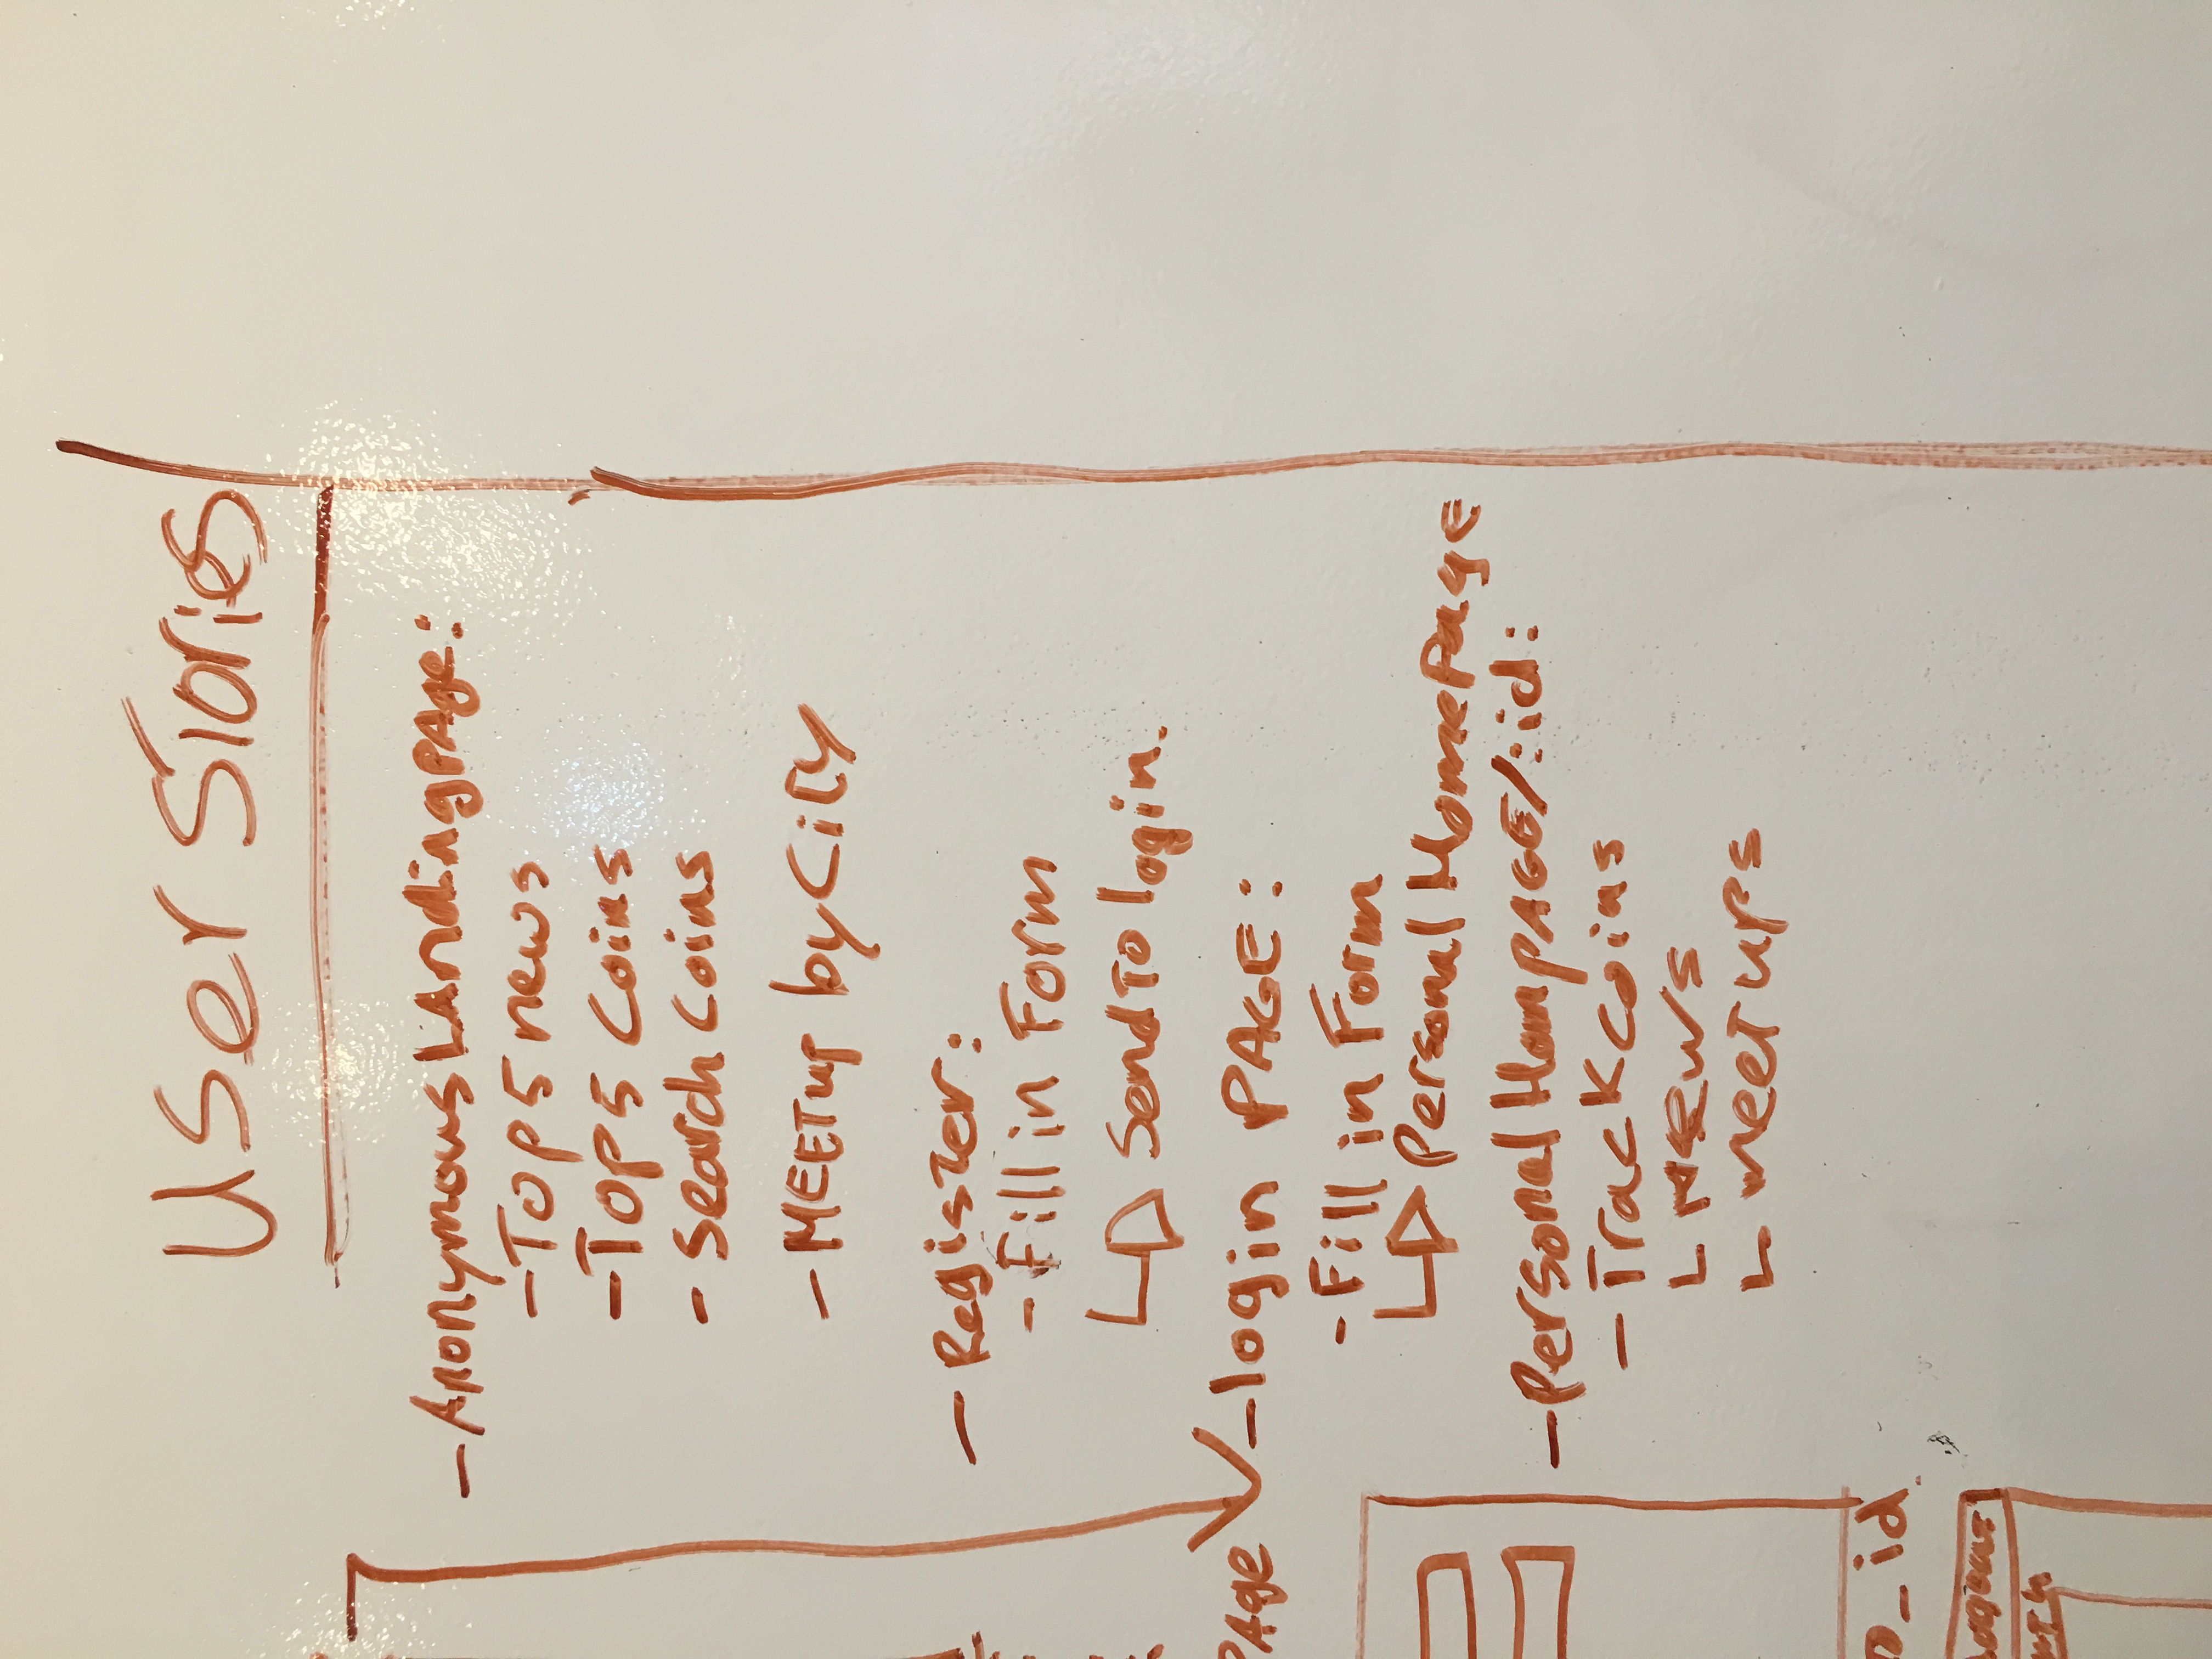 User Stories
- Anonymous Landing Page:
- Top 5 news
- Top 5 Coins
- Search Coins
- MEETup by City
- Register:
- Fill in Form
Send To login.
PAge
- login PAGE:
- Fill in Form
Personal HomePage
- Personal HompAGE/:id:
- Track coins
News
meetups
_id
Logout